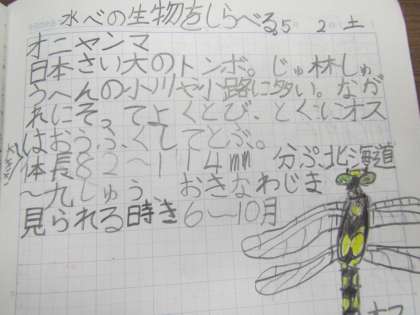 水べの生物をしらべる 5 2 土
オニヤンマ
日本さい大のトンボ。じゅ林しゅ
うへんの小川や小路に多い。なが
れにそってよくとび、とくにオス
はおうふくしてとぶ。
体長82〜114mm 分ぷ北海道
〜九しゅう、おきなわじま
見られる時き6〜10月
オス